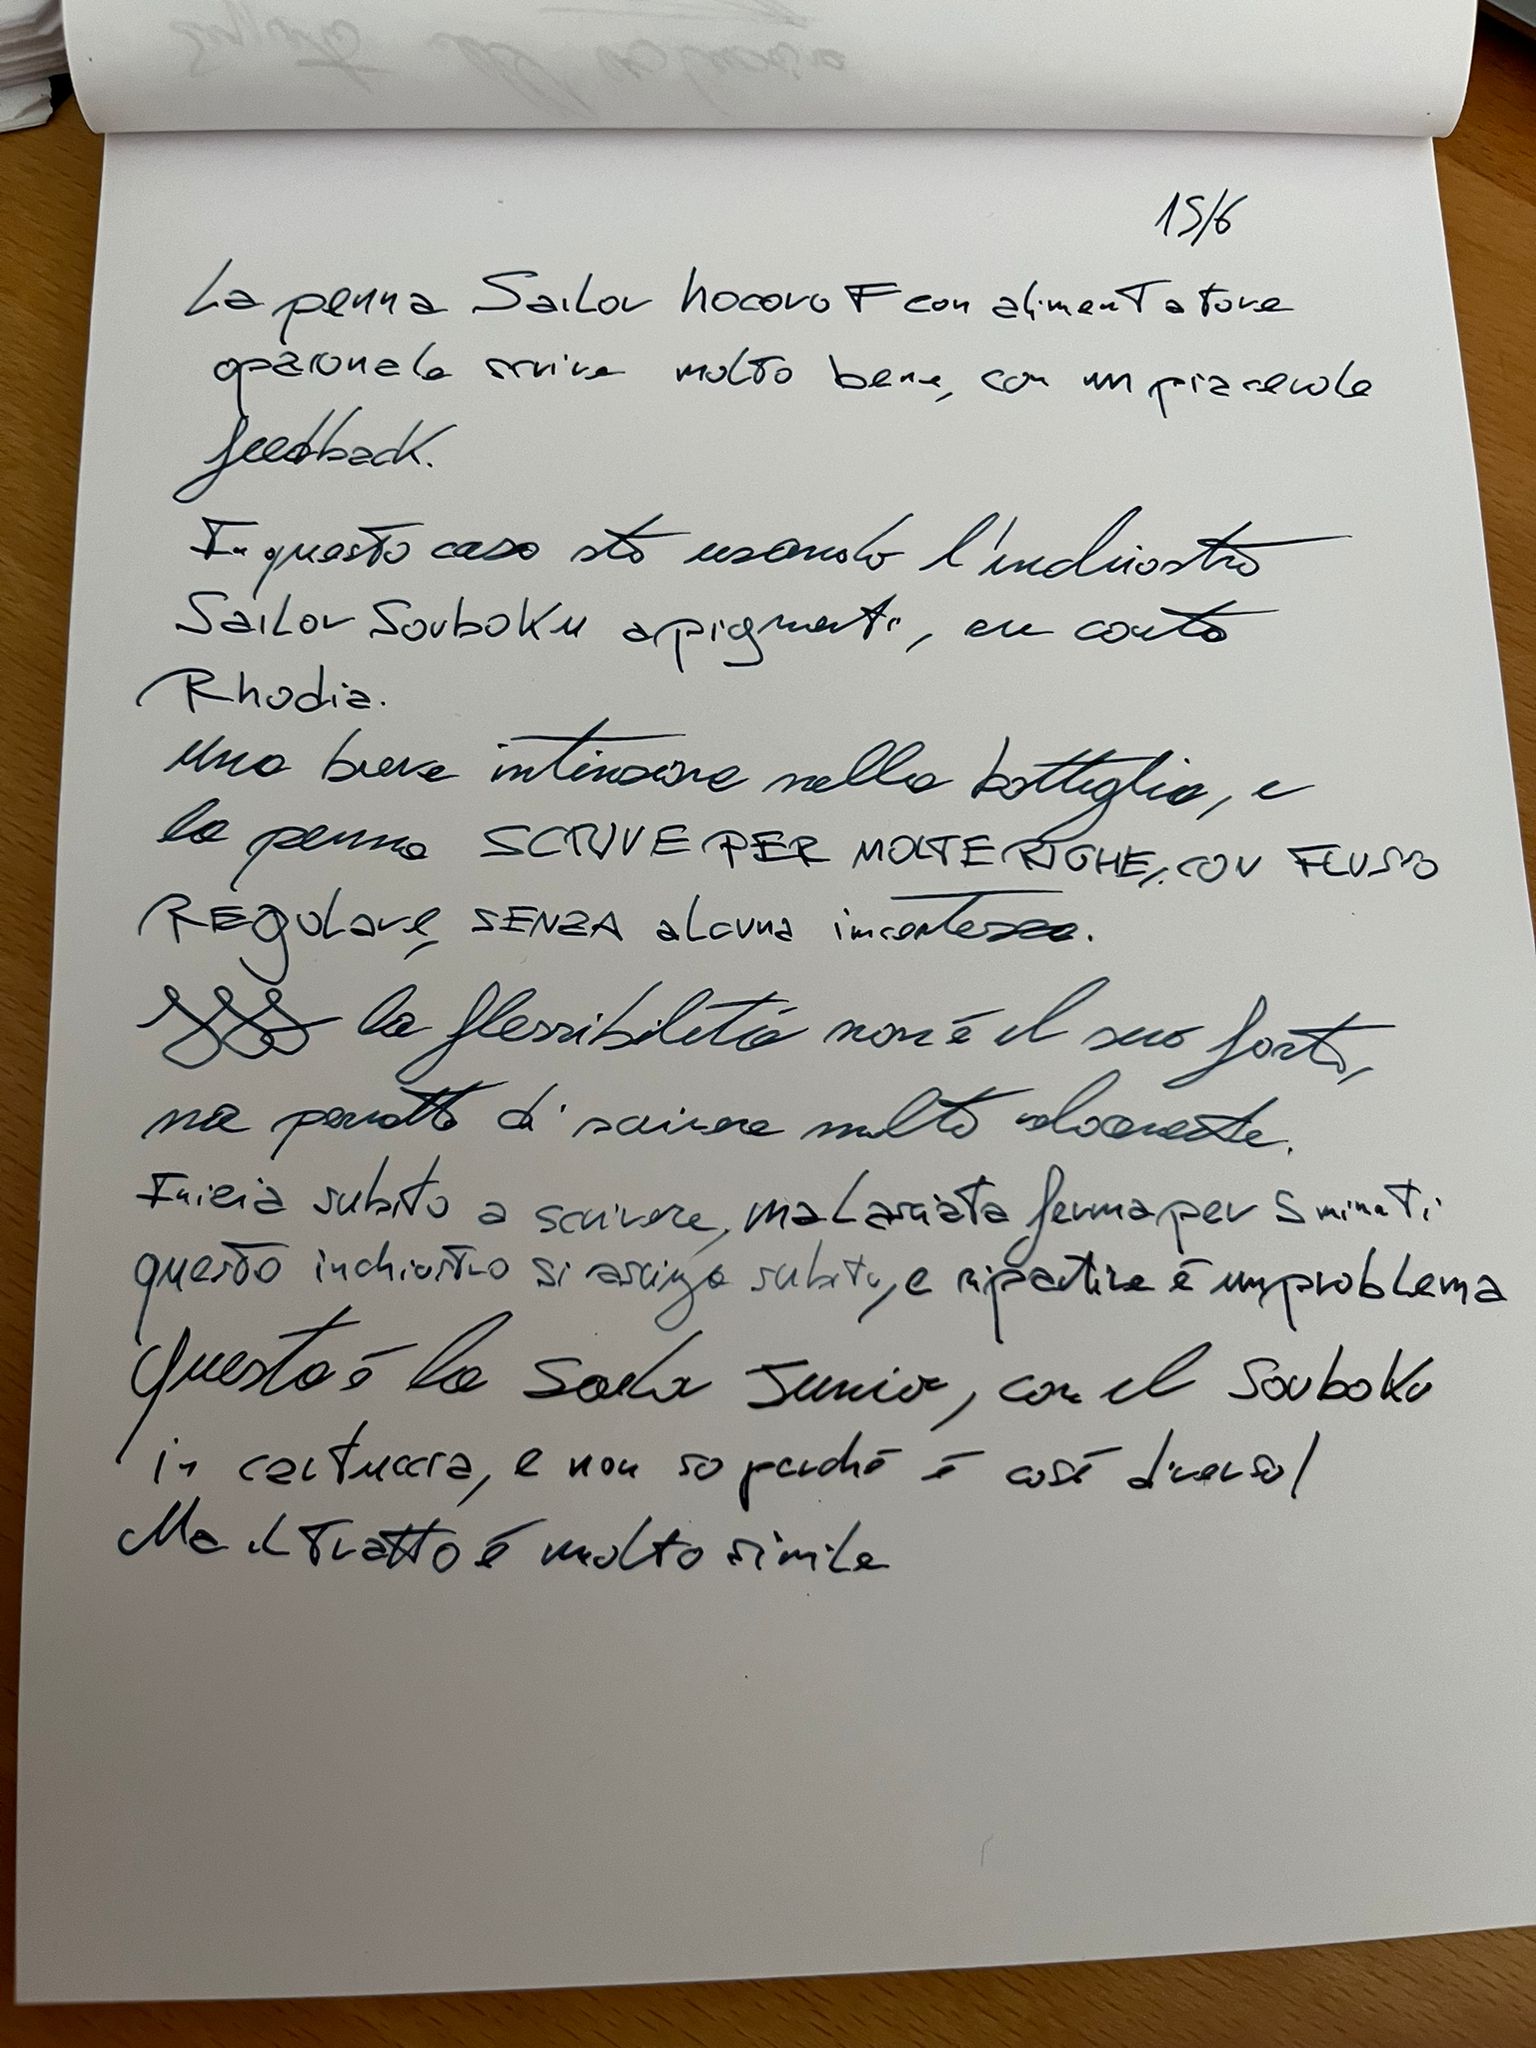 15/6
La penna Sailor hocoro F con alimentatore
opzionale scrive molto bene, con un piacevole
feedback.
In questo caso sto usando l'inchiostro
Sailor Souboku a pigmenti, su carta
Rhodia.
Una breve intinzione nella bottiglia, e
la penna SCRIVE PER MOLTE RIGHE, CON FLUSSO
REGOLARE, SENZA alcuna incertezza.
la flessibilità non è il suo forte,
ma permette di scrivere molto velocemente.
Inizia subito a scrivere, ma lasciata ferma per 5 minuti
questo inchiostro si asciuga subito, e ripartire è un problema
Questa è la Junior, con il Souboku
in cartuccia, e non so perché è così diverso!
Ma il tratto è molto simile